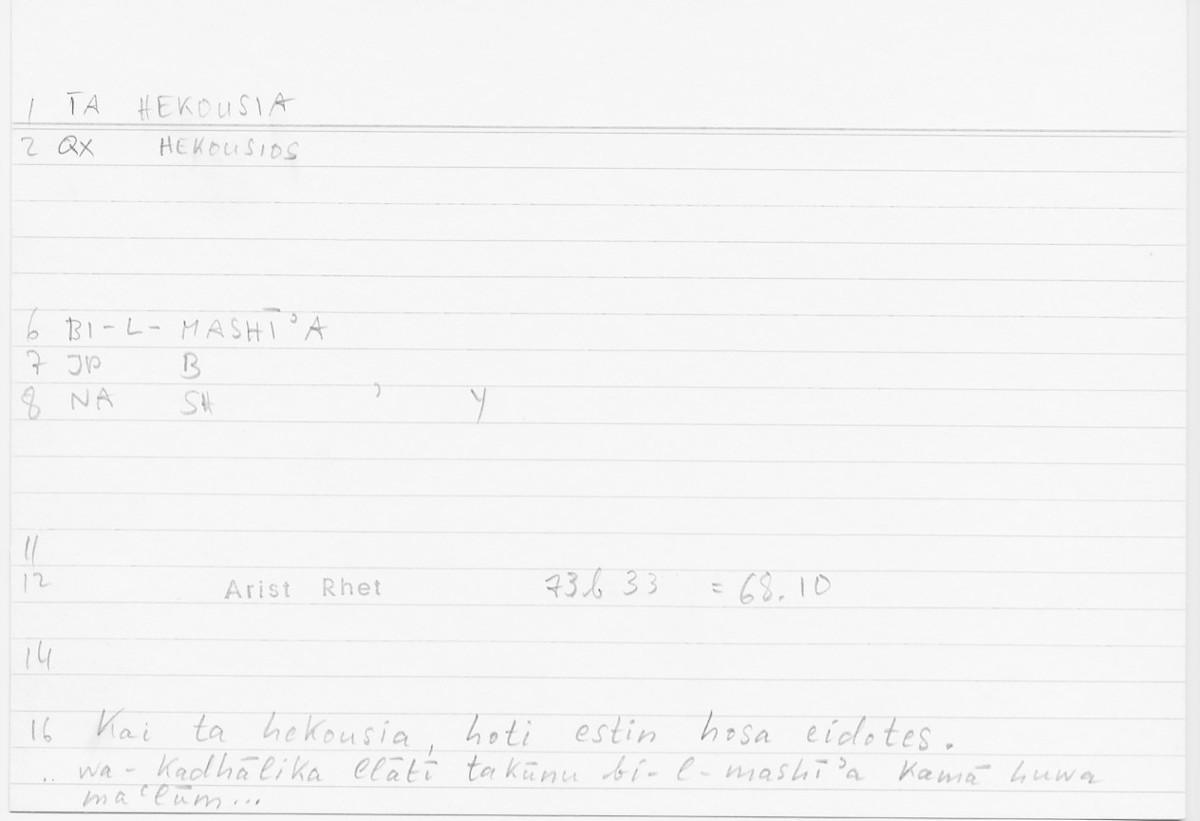 1 TA HEKOUSIA
2 QX HEKOUSIOS
6 BI-L-MASHĪʾA
7 JP B
8 NA SH ʾ Y
11
12 Arist Rhet 73b 33 = 68.10
14
16 Kai ta hekousia, hoti estin hosa eidotes.
.. wa-kadhālika llātī takūnu bi-l-mashīʾa kamā huwa
maʿlūm...